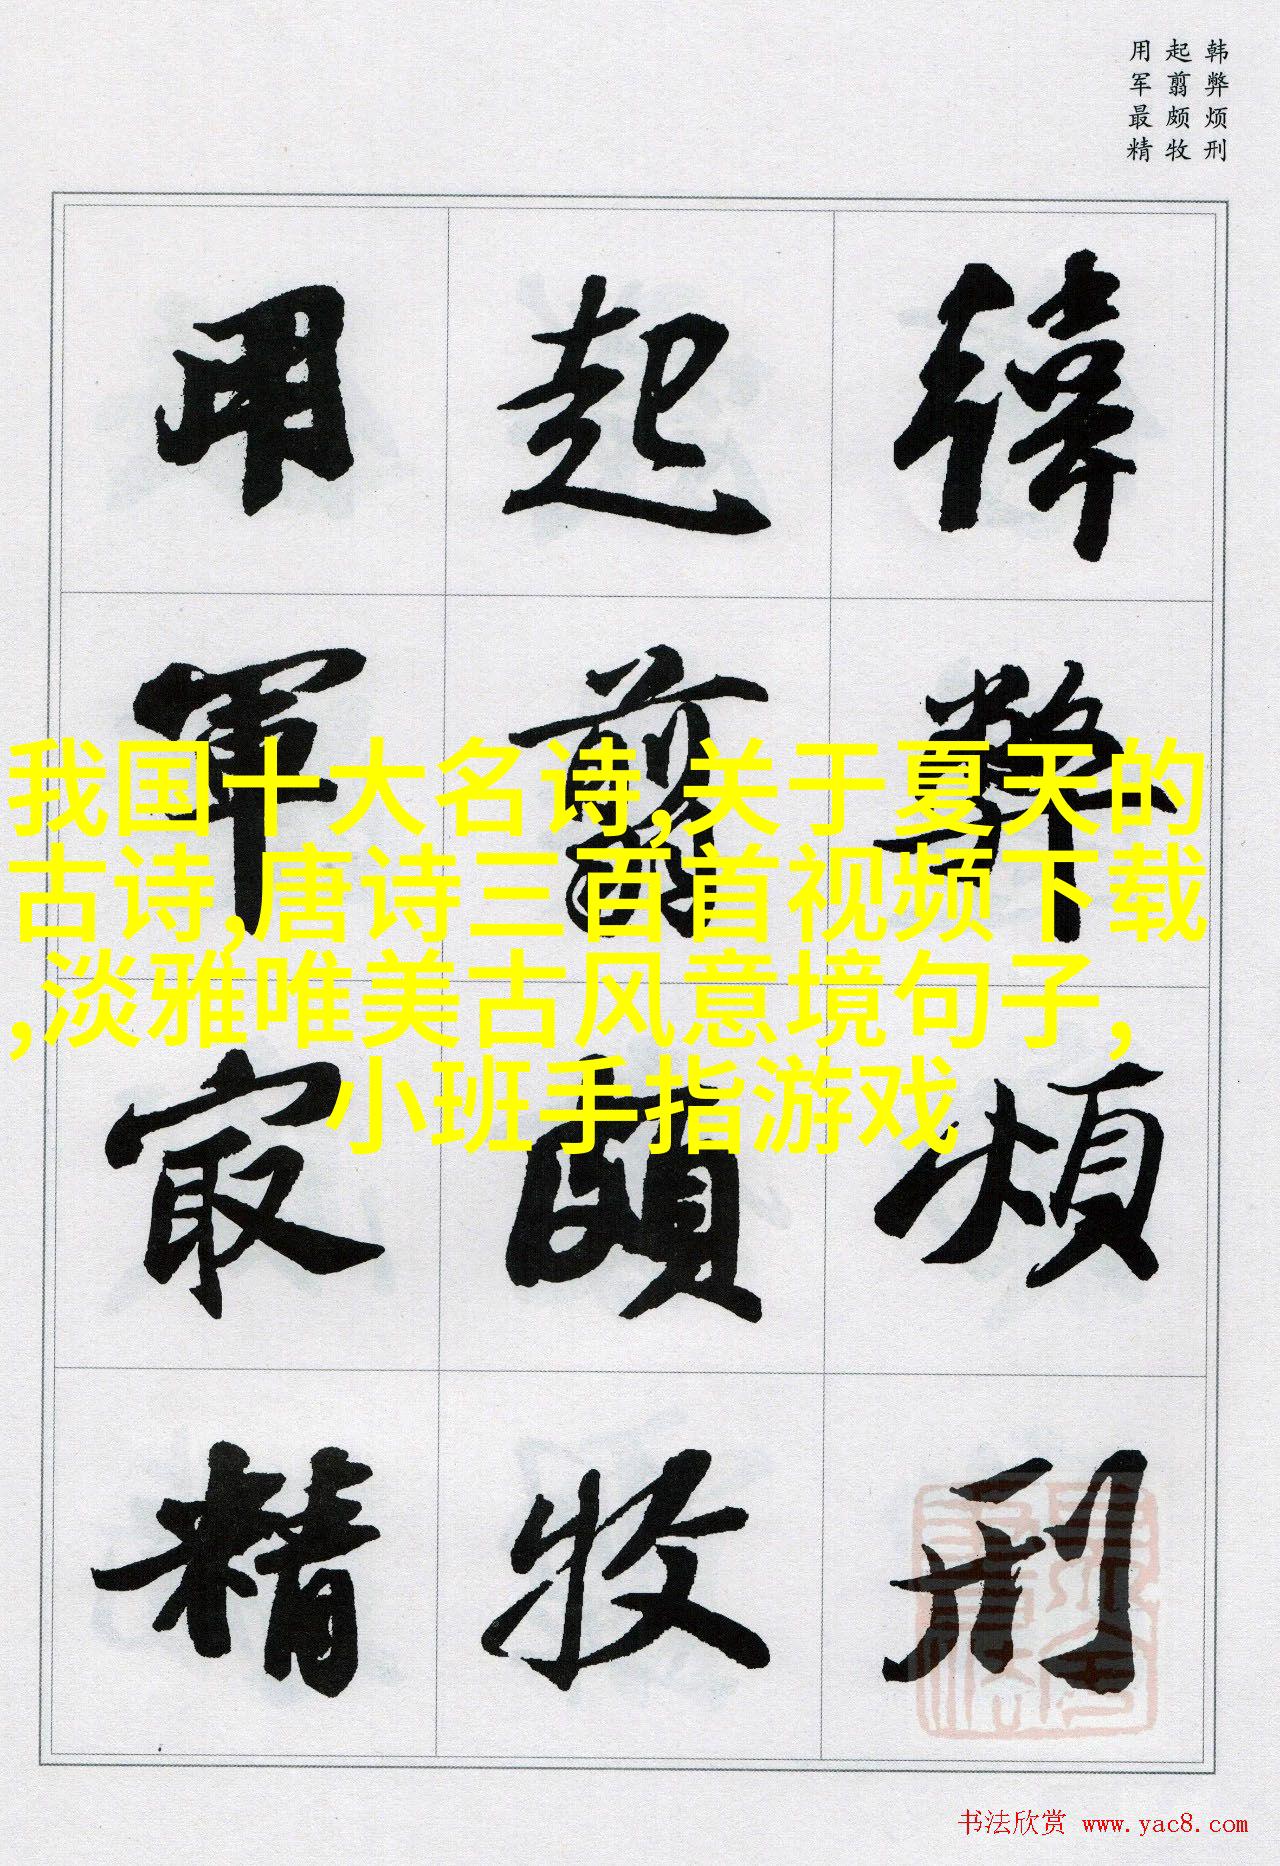 韩弊烦刑
起翦颇牧
用军最精
韓弊煩刑
起翦頗牧
用軍最精
我国十大名诗,关于夏天的
古诗,唐诗三百首视频下载
,淡雅唯美古风意境句子,
小班手指游戏
书法欣赏 www.yac8.com